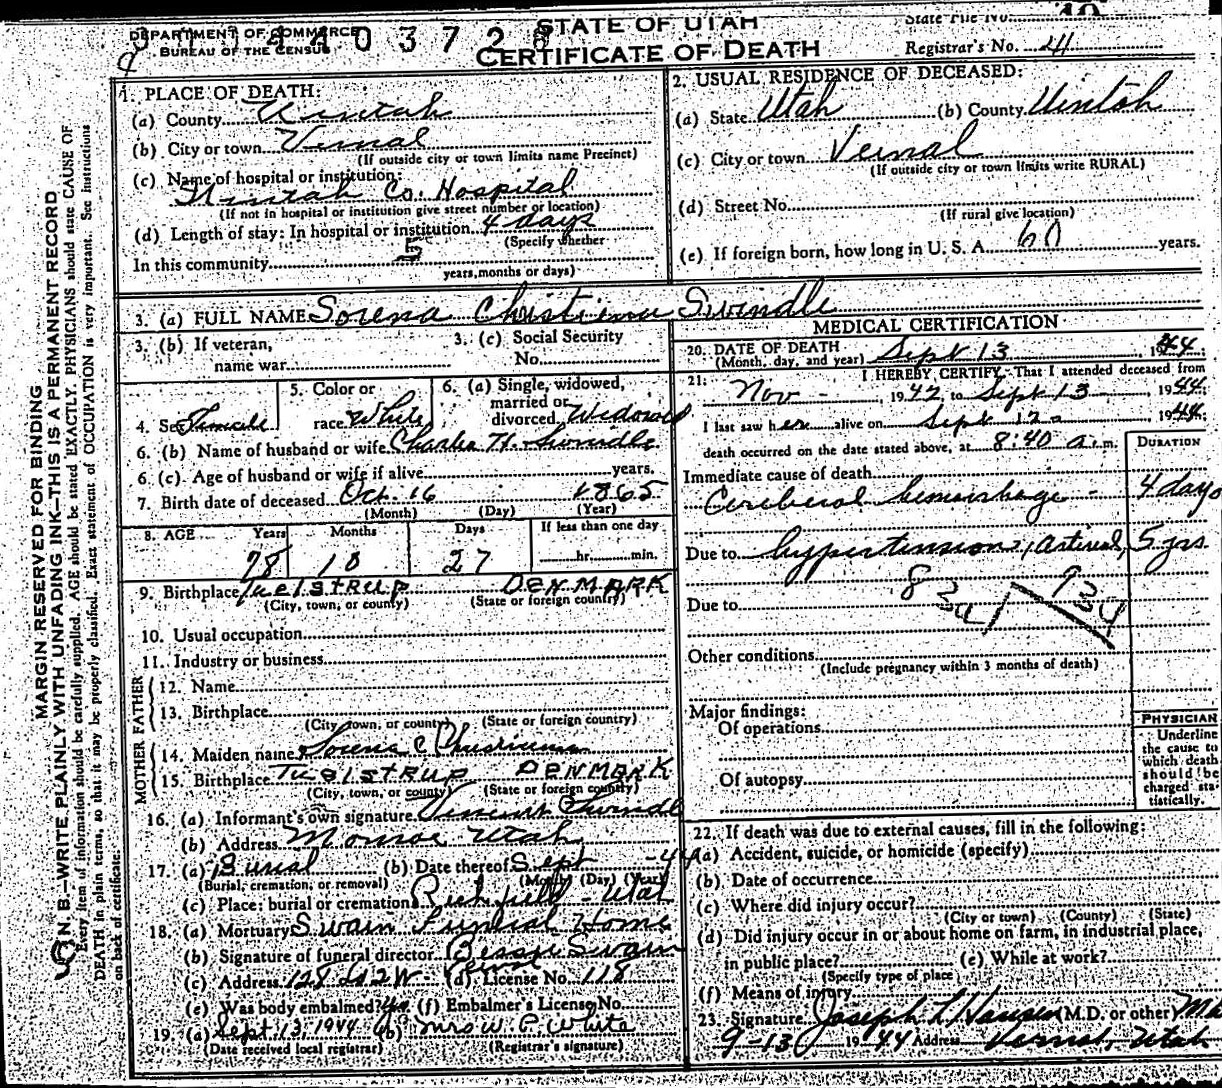 DEPARTMENT OF COMMERCE
BUREAU OF THE CENSUS
STATE OF UTAH
CERTIFICATE OF DEATH
State File No.
Registrar's No. 24
MARGIN RESERVED FOR BINDING
N. B.—WRITE PLAINLY WITH UNFADING INK—THIS IS A PERMANENT RECORD
Every item of information should be carefully supplied. AGE should be stated EXACTLY. PHYSICIANS should state CAUSE OF
DEATH in plain terms, so that it may be properly classified. Exact statement of OCCUPATION is very important. See instructions
on back of certificate.
1. PLACE OF DEATH:
(a) County Uintah
(b) City or town Vernal
(If outside city or town limits name Precinct)
(c) Name of hospital or institution:
Uintah Co. Hospital
(If not in hospital or institution give street number or location)
(d) Length of stay: In hospital or institution 4 days
(Specify whether
In this community 5
years, months or days)
2. USUAL RESIDENCE OF DECEASED:
(a) State Utah (b) County Uintah
(c) City or town Vernal
(If outside city or town limits write RURAL)
(d) Street No.
(If rural give location)
(e) If foreign born, how long in U. S. A. 60 years.
3. (a) FULL NAME Sorena Christiena Swindle
3. (b) If veteran, name war
3. (c) Social Security No.
4. Sex Female
5. Color or race White
6. (a) Single, widowed, married or divorced Widowed
6. (b) Name of husband or wife Charles H. Swindle
6. (c) Age of husband or wife if alive years.
7. Birth date of deceased Oct. 16 1865
(Month) (Day) (Year)
8. AGE Years Months Days If less than one day
78 10 27 hr. min.
9. Birthplace Tuelstrup DENMARK
(City, town, or county) (State or foreign country)
10. Usual occupation
11. Industry or business
FATHER
12. Name
13. Birthplace
(City, town, or county) (State or foreign country)
MOTHER
14. Maiden name Sorena C
15. Birthplace Tuelstrup DENMARK
(City, town, or county) (State or foreign country)
16. (a) Informant's own signature Vincent Swindle
(b) Address Monroe Utah
17. (a) Burial (b) Date thereof Sept -44
(Burial, cremation, or removal) (Month) (Day) (Year)
(c) Place: burial or cremation Richfield - Utah
18. (a) Mortuary Swain Funeral Home
(b) Signature of funeral director Bessie Swain
(c) Address Vernal (d) License No. 118
(e) Was body embalmed? yes (f) Embalmer's License No.
19. (a) Sept 13, 1944 (b) Mrs W. P. White
(Date received local registrar) (Registrar's signature)
MEDICAL CERTIFICATION
20. DATE OF DEATH
(Month, day, and year) Sept 13, 1944
21. I HEREBY CERTIFY, That I attended deceased from
Nov - 1942, to Sept 13 1944
I last saw her alive on Sept 12 1944
death occurred on the date stated above, at 8:40 a.m.
DURATION
Immediate cause of death
Cerebral hemorrhage - 4 days
Due to hypertension, Arterial, 5 yrs
Due to
Other conditions
(Include pregnancy within 3 months of death)
Major findings:
Of operations
Of autopsy
PHYSICIAN
Underline
the cause to
which death
should be
charged sta-
tistically.
22. If death was due to external causes, fill in the following:
(a) Accident, suicide, or homicide (specify)
(b) Date of occurrence
(c) Where did injury occur?
(City or town) (County) (State)
(d) Did injury occur in or about home on farm, in industrial place,
in public place? (e) While at work?
(Specify type of place)
(f) Means of injury
23. Signature Joseph L Hansen (M.D. or other)
9-13 1944 Address Vernal, Utah